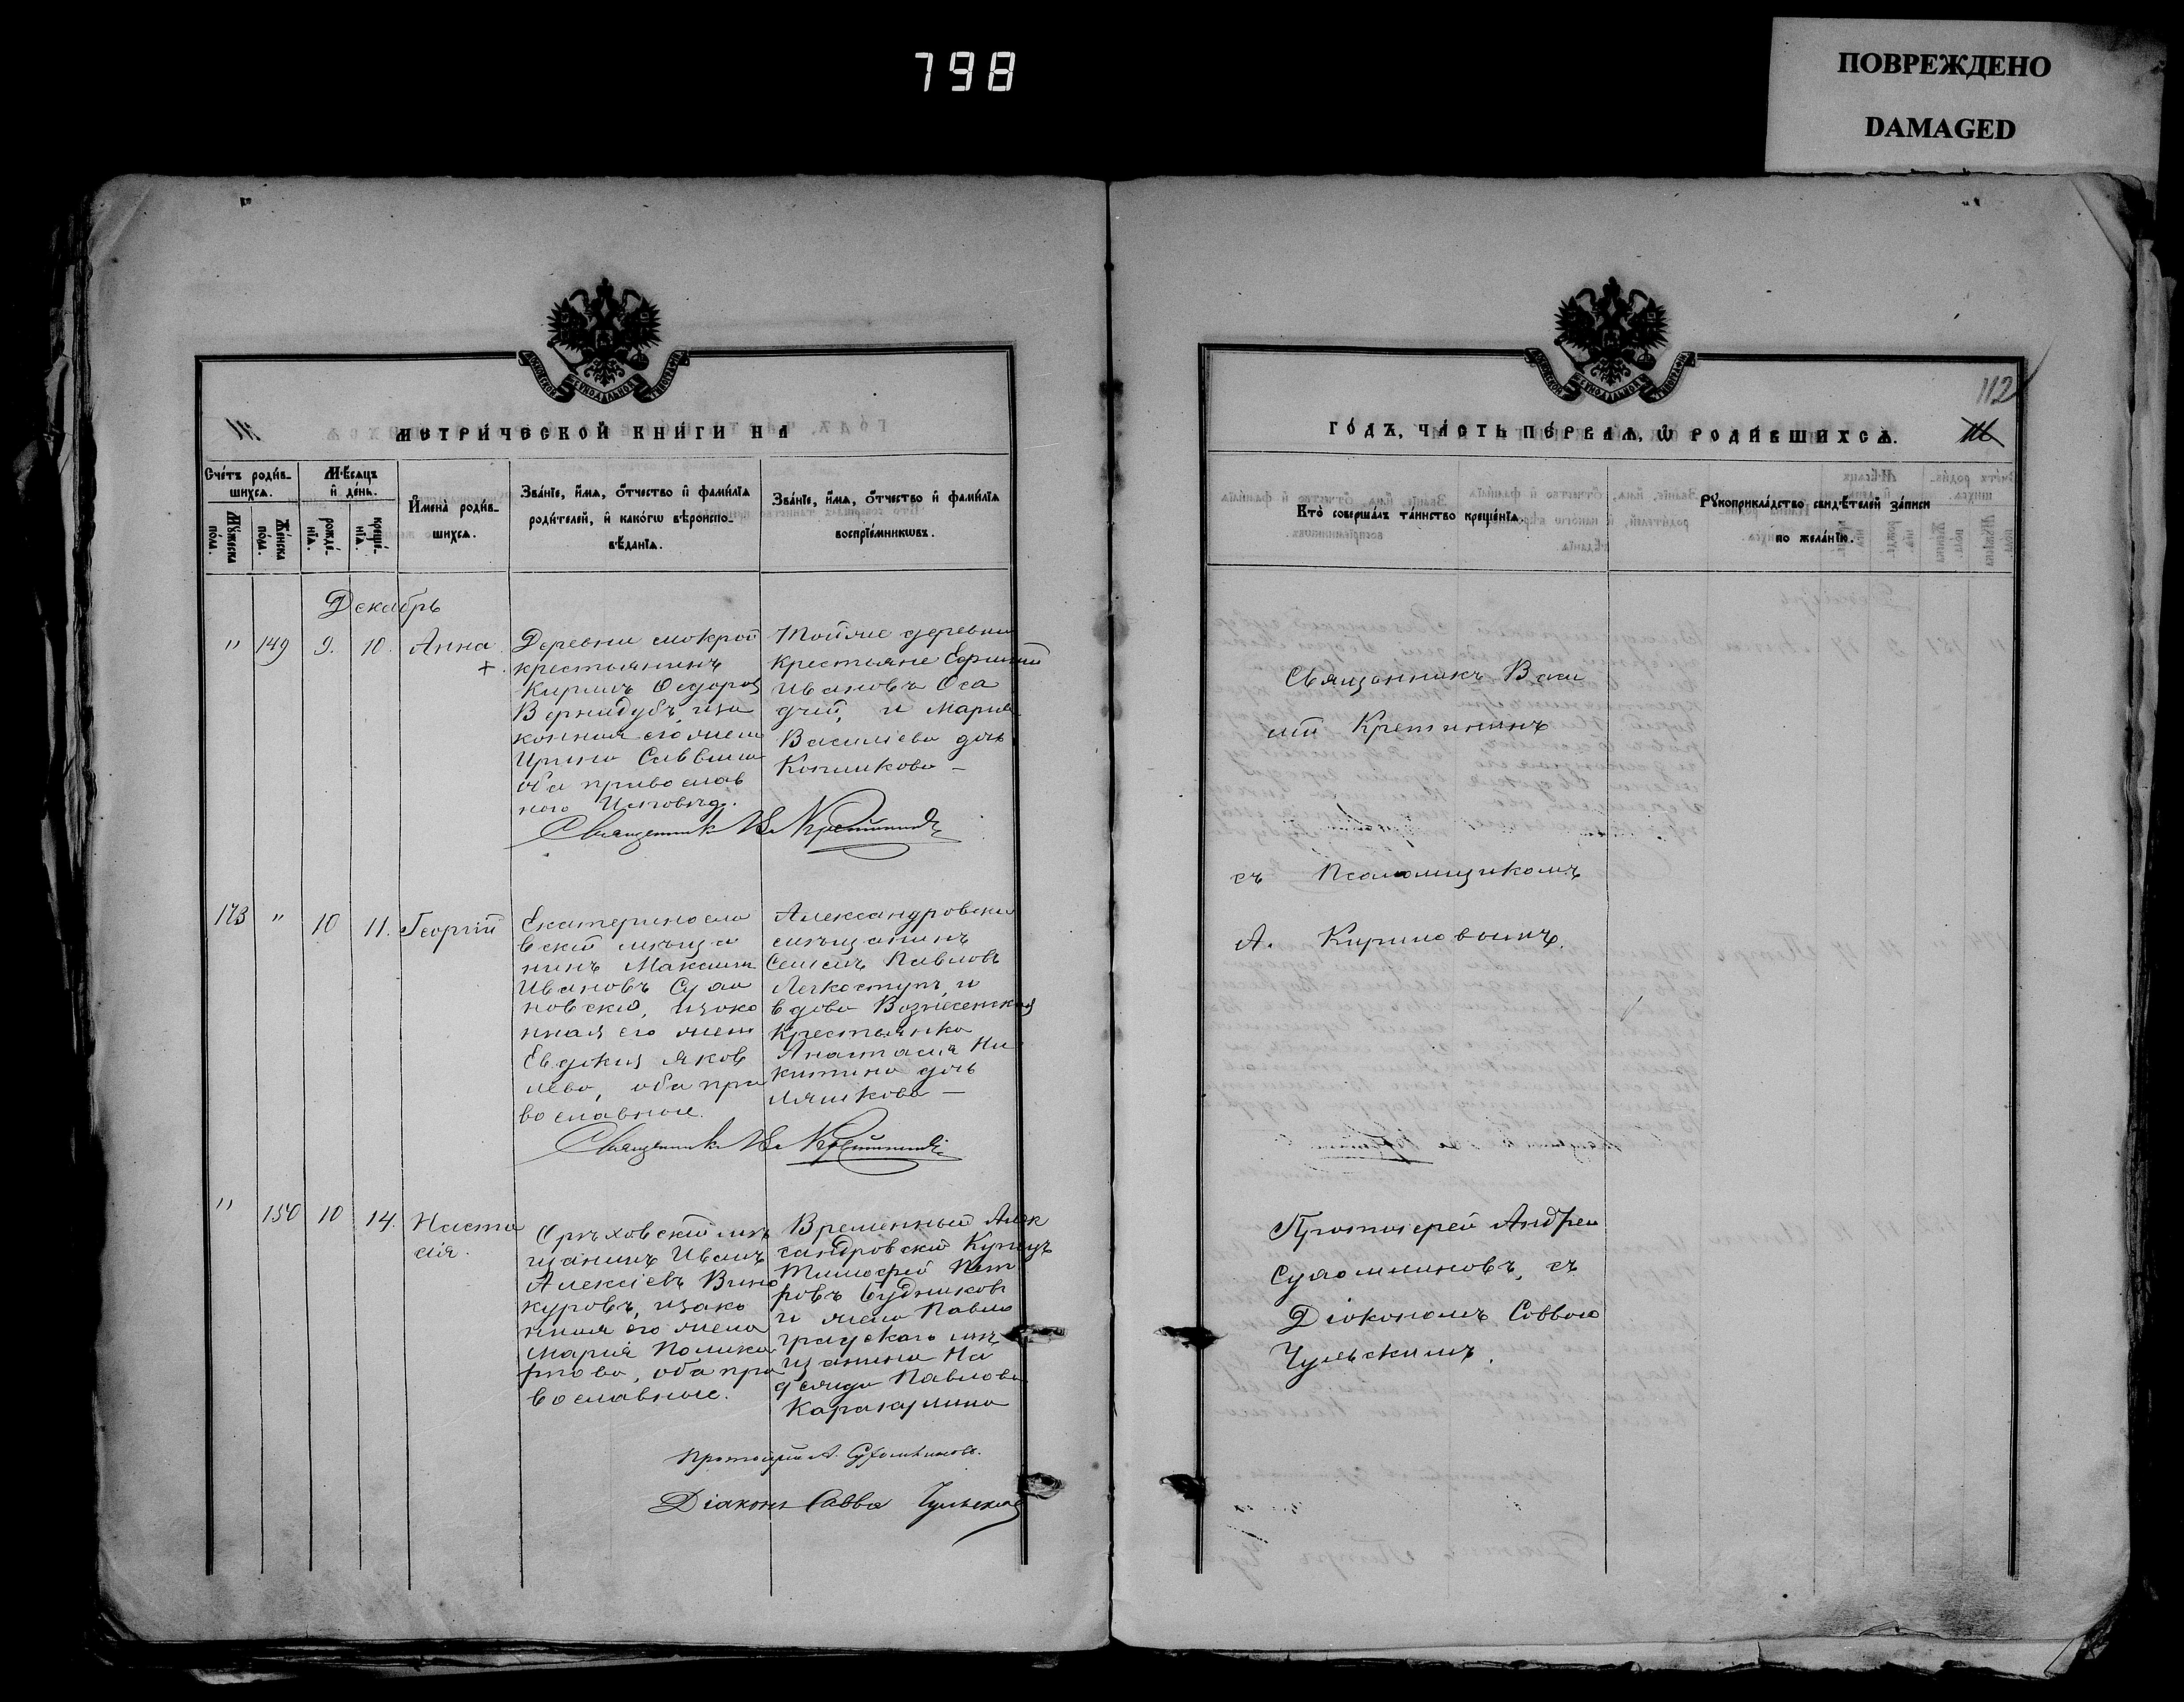 798
ПОВРЕЖДЕНО
DAMAGED
МЕТРИ́ЧЕСКОЙ КНИ́ГИ НА
Сче́тъ роди́в-
шихсѧ.
Мѣ́сѧцъ
и҆ де́нь.
И҆мена̀ роди́в-
шихсѧ.
Зва́нїе, и҆́мѧ, ѻ҆́тчество и҆ фами́лїѧ
роди́телей, и҆ како́гѡ вѣроиспо-
вѣ́данїѧ.
Зва́нїе, и҆́мѧ, ѻ҆́тчество и҆ фами́лїѧ
воспрїе́мникѡвъ.
Мꙋ́жеска
по́ла.
Же́нска
по́ла.
рожде́-
нїѧ.
креще́-
нїѧ.
Декабрь
" 149 9. 10. Анна
+
Деревни Мокрой
крестьянинъ
Кириллъ Ѳедоровъ
Вернидубъ, и за
конная его жена
Ирина Саввина
оба православ
наго Исповѣд.
Тойже деревни
крестьяне Ефимий
Ивановъ Оса
дчій, и Марія
Василіева дочь
Копликова —
Священникъ Ва Кретининъ
173 " 10 11. Георгій
Екатеринослав
вскій мѣща
нинъ Максим
Ивановъ
новскій, и зако
нная его жена
Евдокия Яков
лева, оба пра
вославные.
Александровскій
мѣщанинъ
Семенъ Павловъ
Легкоступъ, и
вдова Вознесенская
крестьянка
Анастасія Ни
китина дочь
Ляшкова —
Священникъ Ва Кретининъ
" 150 10 14. Наста
сія.
Орѣховский мѣ
щанинъ Иванъ
Алексіевъ Вино
куровъ, и зако
нная его жена
Марія Полика
рпова, оба пра
вославные.
Временный Алек
сандровскій Купецъ
Тимофей Пет
ровъ Будниковъ
и жена Павло
градского мѣ
щанина На
дежда Павлова
Протоіерей А. Сухомлиновъ.
Діаконъ Савва Чульскій
112
ГО́ДЪ, ЧА́СТЬ ПЕ́РВАѦ, Ѽ РОДИ́ВШИХСѦ.
Кто̀ соверша́лъ та́инство креще́нїѧ.
Рꙋкоприкла́дство свидѣ́телей за́писи
по жела́нїю.
Священникъ Васи
лій Кретининъ
съ Псаломщикомъ
А. Кириловымъ.
Протоіерей Андрей
Сухомлиновъ, съ
Діакономъ Саввою
Чульскимъ.